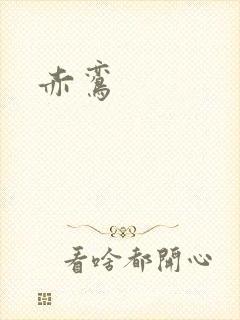 赤鸾
看啥都開心